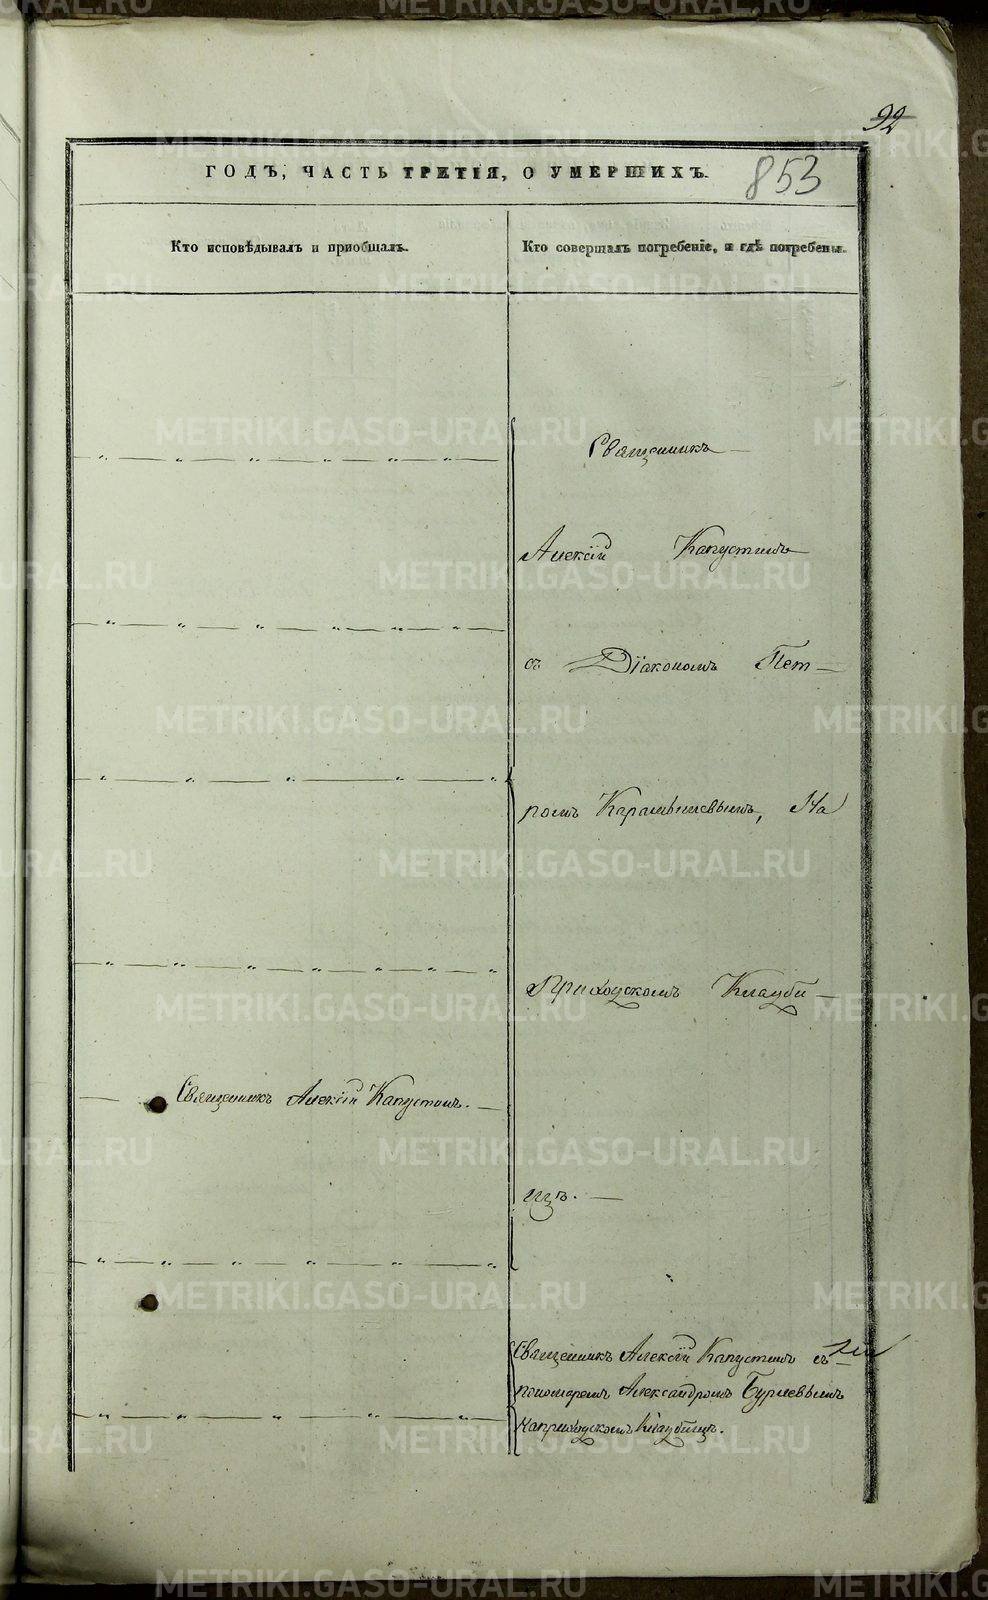 92
853
ГОДЪ, ЧАСТЬ ТРЕТІЯ, О УМЕРШИХЪ.
Кто исповѣдывалъ и пріобщалъ.
Кто совершалъ погребеніе, и гдѣ погребены.
Священникъ
Алексій Капустинъ
съ Діакономъ Пет-
ромъ Карамышевымъ, На
Приходскомъ Кладби-
щѣ.
Священникъ Алексій Капустинъ.
Священникъ Алексій Капустинъ съ
пономаремъ Александромъ
На приходскомъ Кладбищѣ.
METRIKI.GASO-URAL.RU